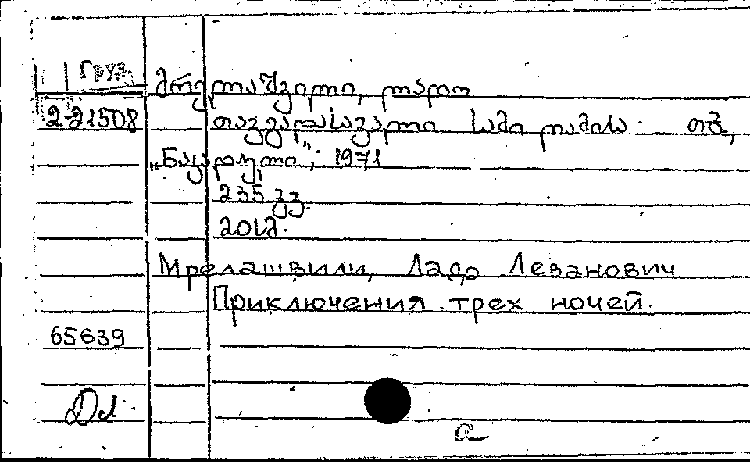 Груз.
მრელაშვილი, ლადო
2-21508 თავგადასავალი სამი ღამისა. თბ.,
„ნაკადული“, 1971
235 გვ.
Мрелашвили, Ладо Леванович
Приключения трех ночей.
65639